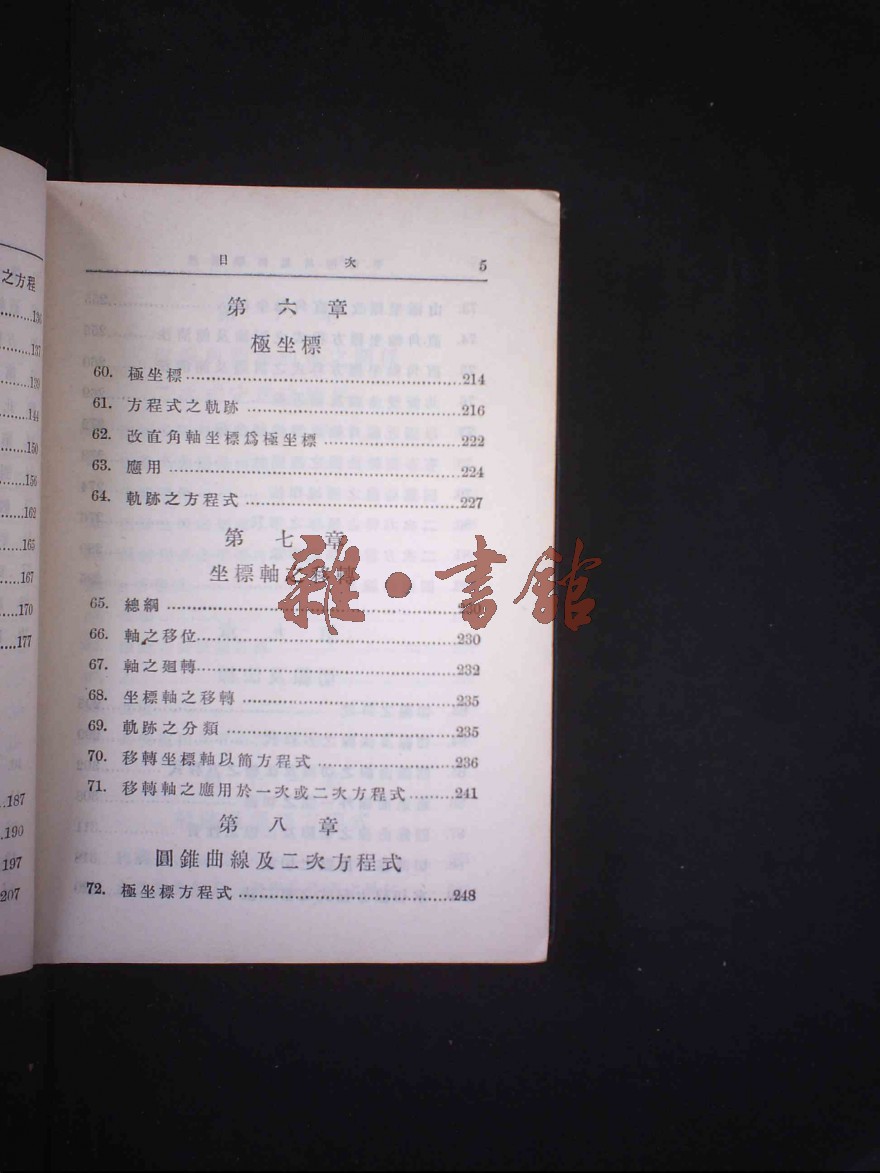 之方程
136
137
139
144
150
156
162
165
167
170
177
187
190
197
207
目 次 5
第六章
極坐標
60. 極坐標 214
61. 方程式之軌跡 216
62. 改直角軸坐標爲極坐標 222
63. 應用 224
64. 軌跡之方程式 227
第七章
坐標軸之移轉
65. 總綱 230
66. 軸之移位 230
67. 軸之廻轉 232
68. 坐標軸之移轉 235
69. 軌跡之分類 235
70. 移轉坐標軸以簡方程式 236
71. 移轉軸之應用於一次或二次方程式 241
第八章
圓錐曲線及二次方程式
72. 極坐標方程式 248
雜·書館